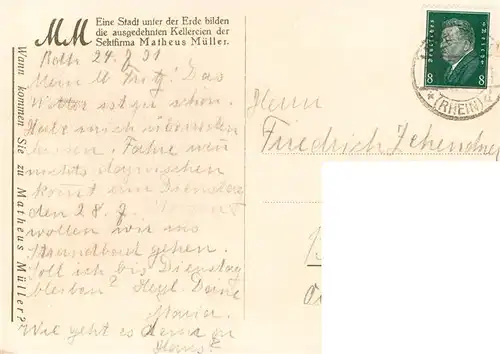 MM
Eine Stadt unter der Erde bilden
die ausgedehnten Kellereien der
Sektfirma Matheus Müller.
Wann kommen Sie zu Matheus Müller?
24. 7. 31
Mein lb. Fritz! Das
Wetter ist ja schön.
Habe mich
lassen. Fahre wenn
nichts dazwischen
kommt am Dienstag
den 28. 7.
wollen wir ins
Strandbad gehen.
Soll ich bis Dienstag
bleiben? Herzl. Deine
Maria.
Wie geht es denn
Hans?
Deutsches Reich
8 8
(RHEIN)
Herrn
Friedrich